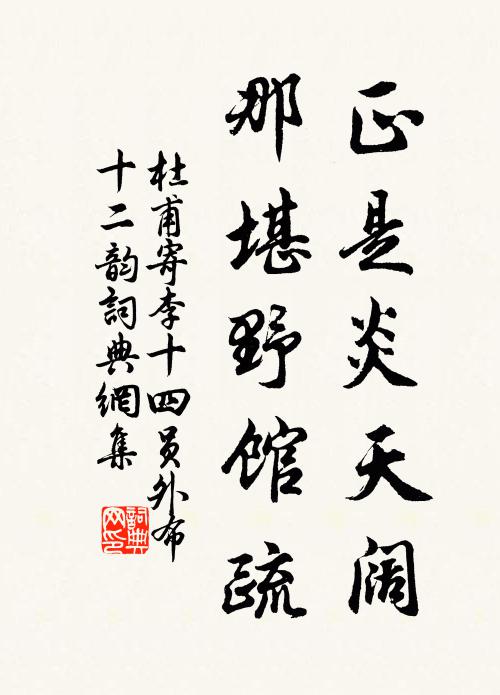 正是炎天阔
那堪野馆疏
杜甫寄李十四员外布
十二韵词典網集
詞典网印